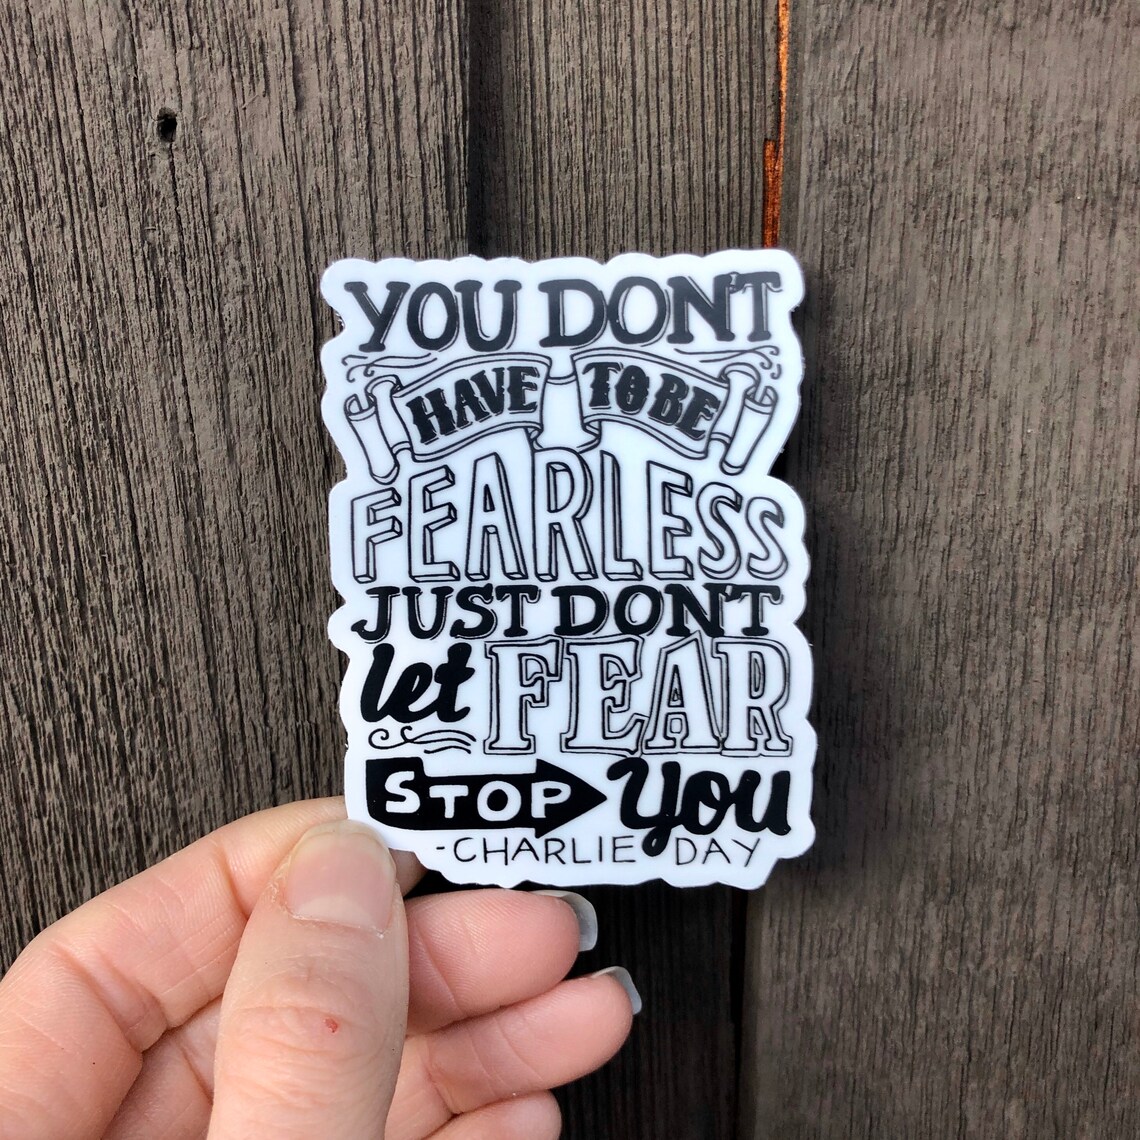 YOU DON'T
HAVE TO BE
FEARLESS
JUST DON'T
let FEAR
STOP you
-CHARLIE DAY